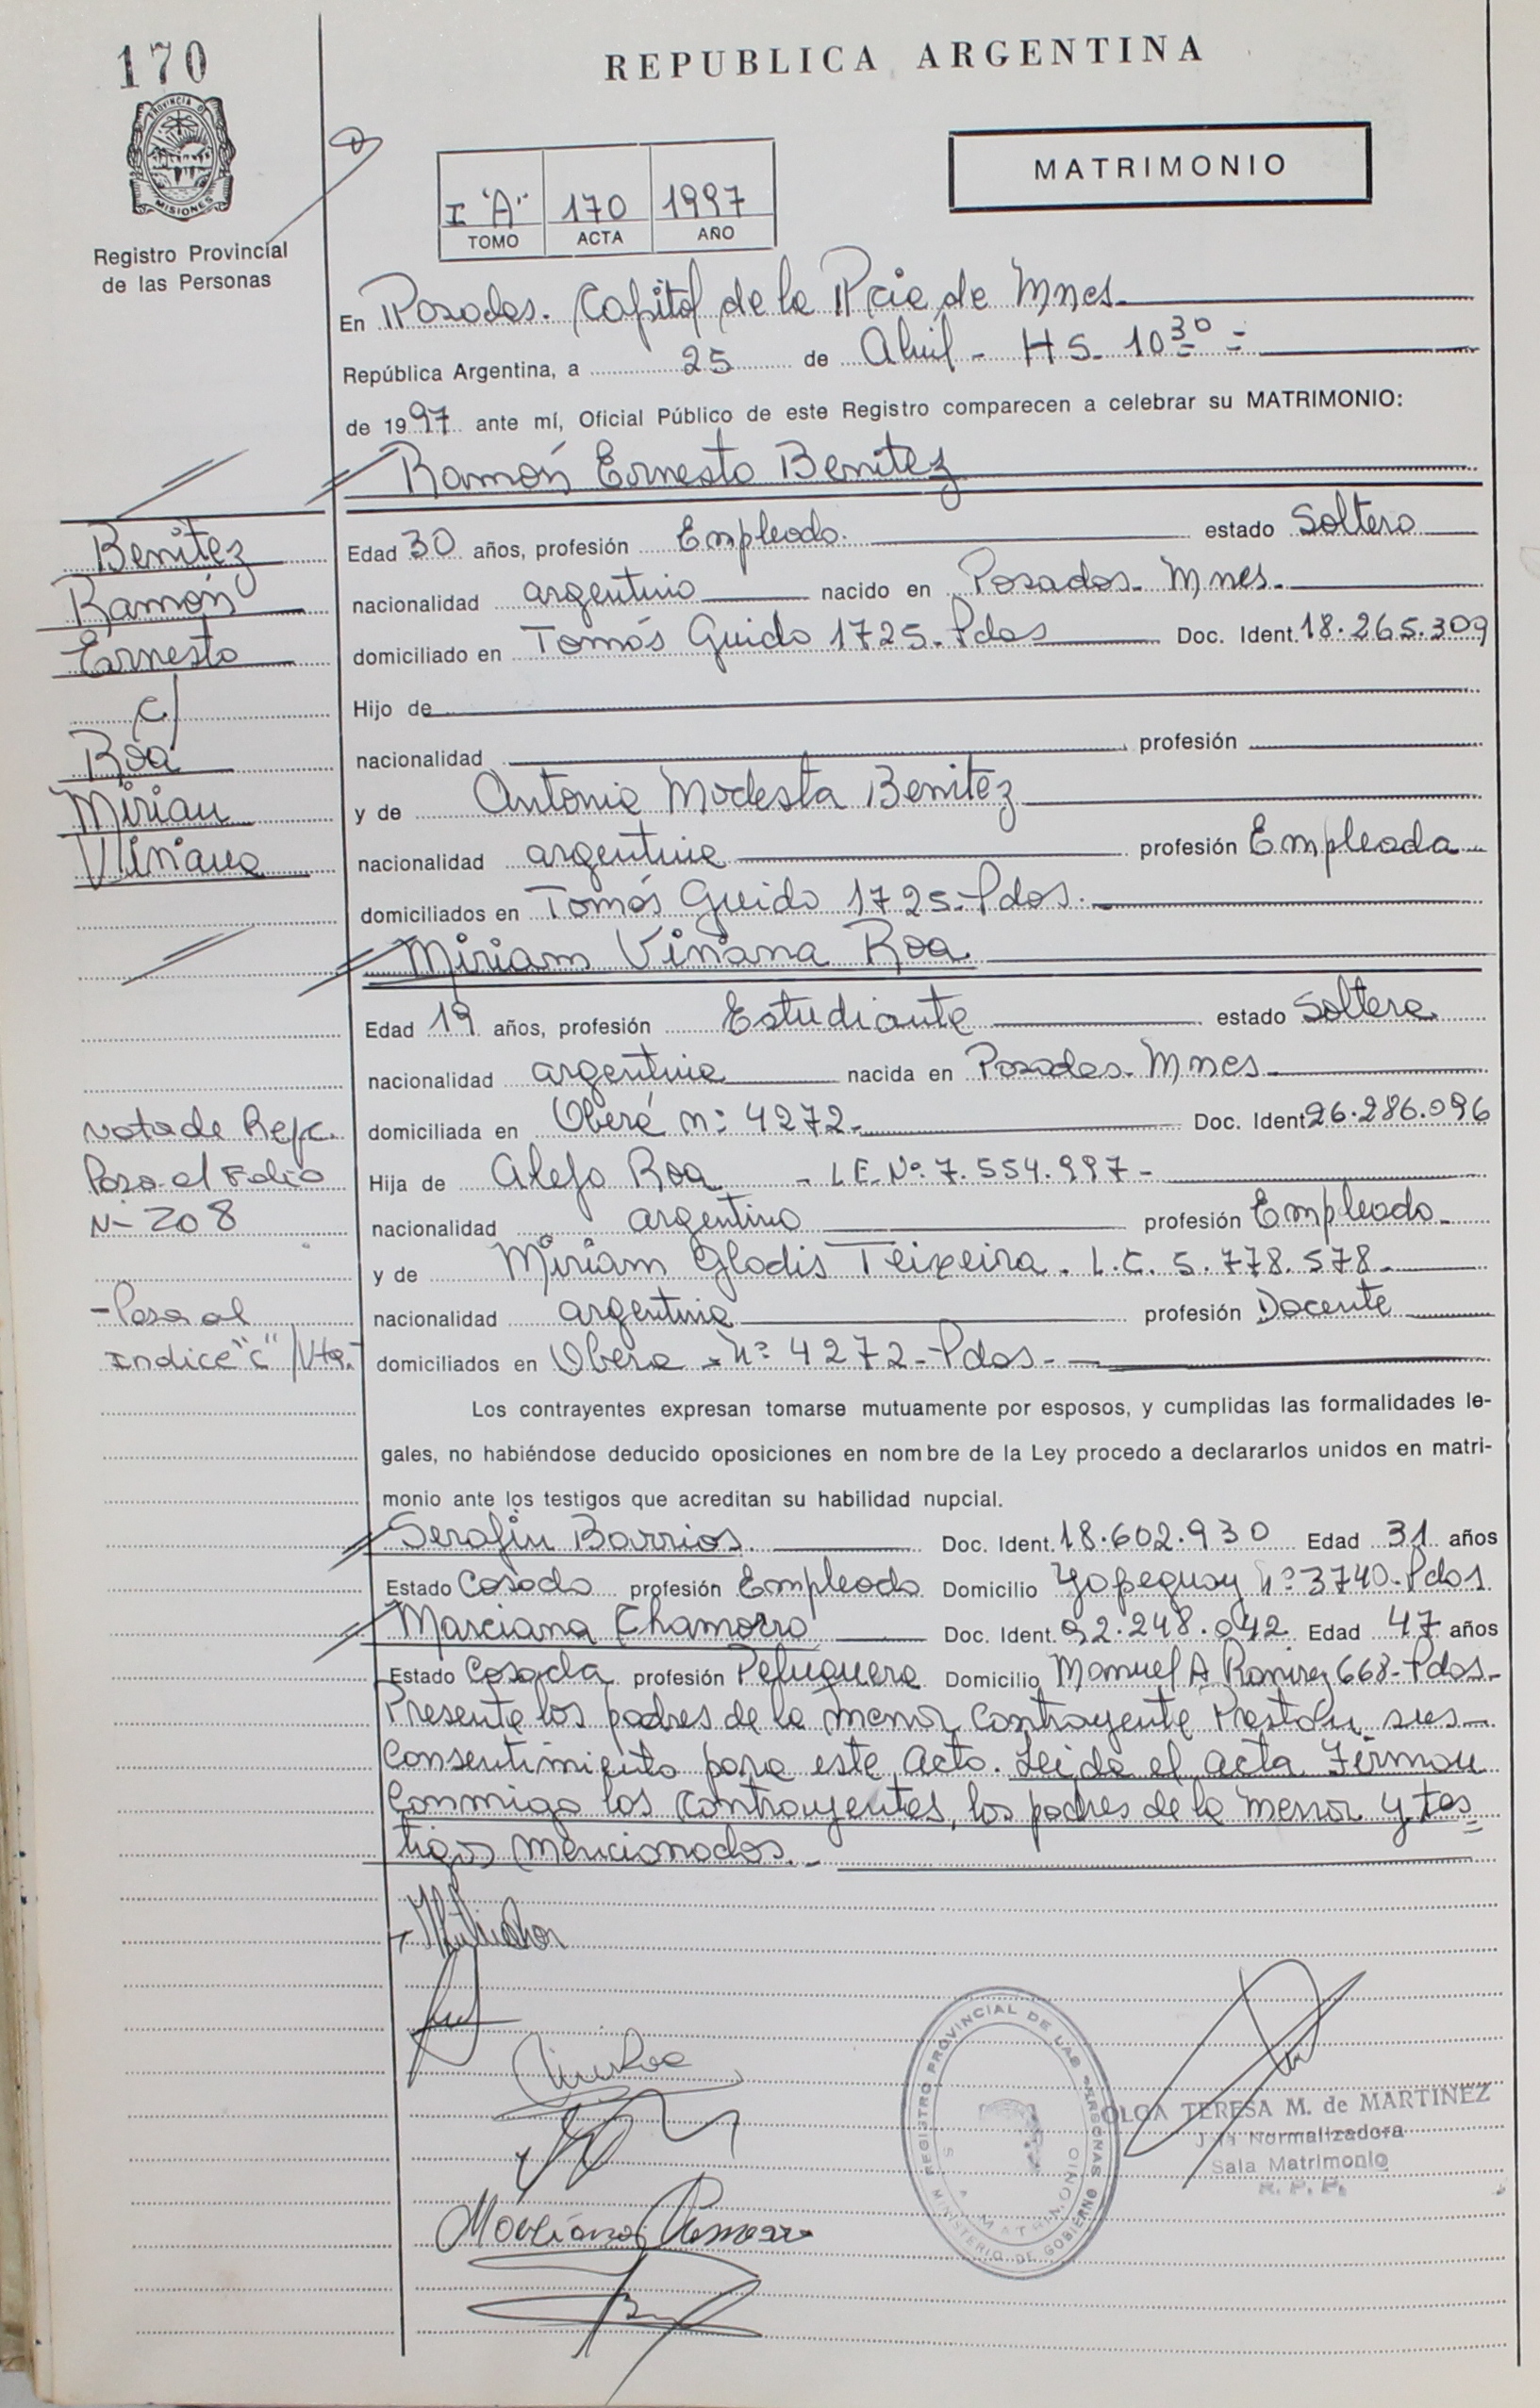 170
REPUBLICA ARGENTINA
PROVINCIA D
MISIONES
Registro Provincial
de las Personas
MATRIMONIO
I "A" 170 1997
TOMO ACTA AÑO
En Posadas. Capital de la Pcia de Mnes
República Argentina, a 25 de Abril - HS. 10 30 =
de 1997 ante mí, Oficial Público de este Registro comparecen a celebrar su MATRIMONIO:
Ramón Ernesto Benitez
Edad 30 años, profesión Empleado. estado Soltero
nacionalidad argentino nacido en Posadas. Mnes.
domiciliado en Tomás Guido 1725-Pdas Doc. Ident. 18.265.309
Hijo de
nacionalidad profesión
y de Antonia Modesta Benitez
nacionalidad argentina profesión Empleada
domiciliados en Tomás Guido 1725-Pdas.
Miriam Viviana Roa
Edad 19 años, profesión Estudiante estado Soltera
nacionalidad argentina nacida en Posadas. Mnes
domiciliada en Oberá n: 4272- Doc. Ident 26.286.096
Hija de Alejo Roa - L.E. Nº 7.554.997-
nacionalidad argentino profesión Empleado
y de Miriam Gladis Teixeira. L.C. 5.778.578-
nacionalidad argentina profesión Docente
domiciliados en Obera - Nº 4272-Pdas-
Los contrayentes expresan tomarse mutuamente por esposos, y cumplidas las formalidades le-
gales, no habiéndose deducido oposiciones en nombre de la Ley procedo a declararlos unidos en matri-
monio ante los testigos que acreditan su habilidad nupcial.
Serafin Barrios Doc. Ident. 18.602.930 Edad 31 años
Estado Casado profesión Empleado Domicilio Yapeguay Nº 3740-Pdas
Marciana Chamorro Doc. Ident. 92.248.042 Edad 47 años
Estado Casada profesión Peluquera Domicilio Manuel A Ramirez 668-Pdas-
Presente los padres de la menor Contrayente Prestan sus
Consentimiento para este Acto. Leida el acta Firman
Conmigo los Contrayentes, los padres de la menor y tes=
tigos mencionados.-
Benitez
Ramón
Ernesto
c/
Roa
Mirian
Viviana
nota de Refc.
Pasa al Folio
N- 208
- Pasa al
Indice "C" /Vta.
REGISTRO PROVINCIAL DE LAS PERSONAS
MATRIMONIO
MINISTERIO DE GOBIERNO
OLGA TERESA M. de MARTINEZ
Normalizadora
Sala Matrimonio
R. P. P.
Marciana Chamorro